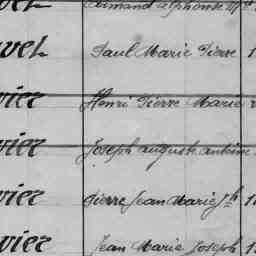 Armand alphonse M
vet Paul Marie Pierre 1
vier Henri Pierre Marie
vier Joseph auguste antoine
vier Pierre Jean Marie Jh 1
vier Jean Marie Joseph 1